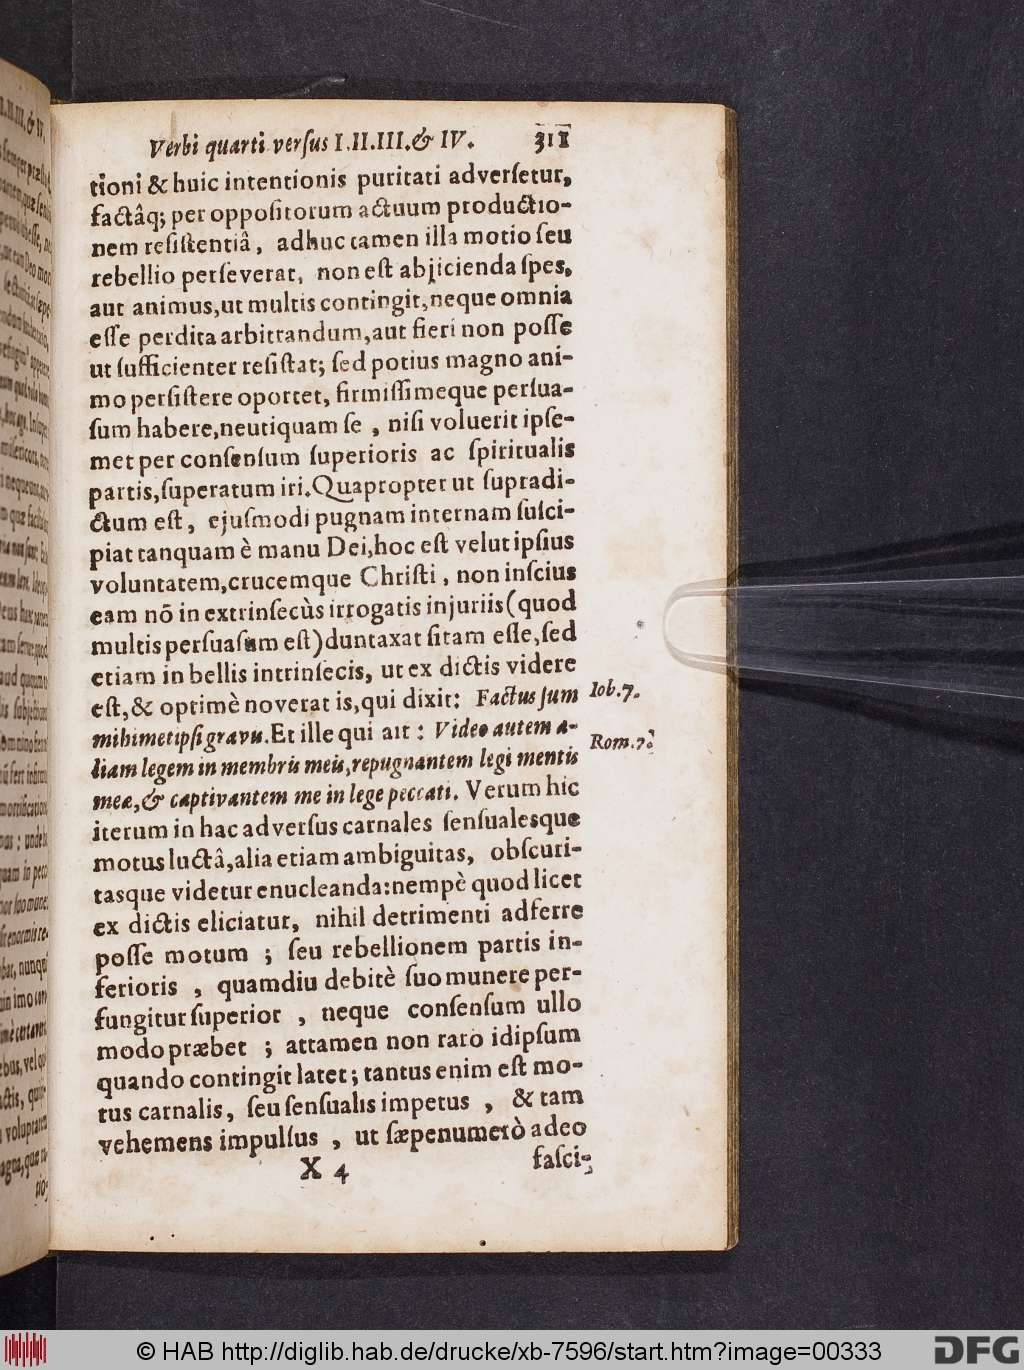 Verbi quarti versus I.II.III.& IV. 311
tioni & huic intentionis puritati adversetur,
factâq; per oppositorum actuum productio-
nem resistentiâ, adhuc tamen illa motio seu
rebellio perseverat, non est abjicienda spes,
aut animus, ut multis contingit, neque omnia
esse perdita arbitrandum, aut fieri non posse
ut sufficienter resistat; sed potius magno ani-
mo persistere oportet, firmissimeque persua-
sum habere, neutiquam se, nisi voluerit ipse-
met per consensum superioris ac spiritualis
partis, superatum iri. Quapropter ut supradi-
ctum est, ejusmodi pugnam internam susci-
piat tanquam è manu Dei, hoc est velut ipsius
voluntatem, crucemque Christi, non inscius
eam nō in extrinsecùs irrogatis injuriis (quod
multis persuasum est) duntaxat sitam esse, sed
etiam in bellis intrinsecis, ut ex dictis videre
est, & optimè noverat is, qui dixit: Factus sum
mihimetipsi gravis. Et ille qui ait: Video autem a-
liam legem in membris meis, repugnantem legi mentis
meæ, & captivantem me in lege peccati. Verum hic
iterum in hac adversus carnales sensualesque
motus luctâ, alia etiam ambiguitas, obscuri-
tasque videtur enucleanda: nempè quod licet
ex dictis eliciatur, nihil detrimenti adferre
posse motum; seu rebellionem partis in-
ferioris, quamdiu debitè suo munere per-
fungitur superior, neque consensum ullo
modo præbet; attamen non raro idipsum
quando contingit latet; tantus enim est mo-
tus carnalis, seu sensualis impetus, & tam
vehemens impulsus, ut sæpenumerò adeo
X 4 fasci-
Iob. 7.
Rom. 7.
© HAB http://diglib.hab.de/drucke/xb-7596/start.htm?image=00333
DFG